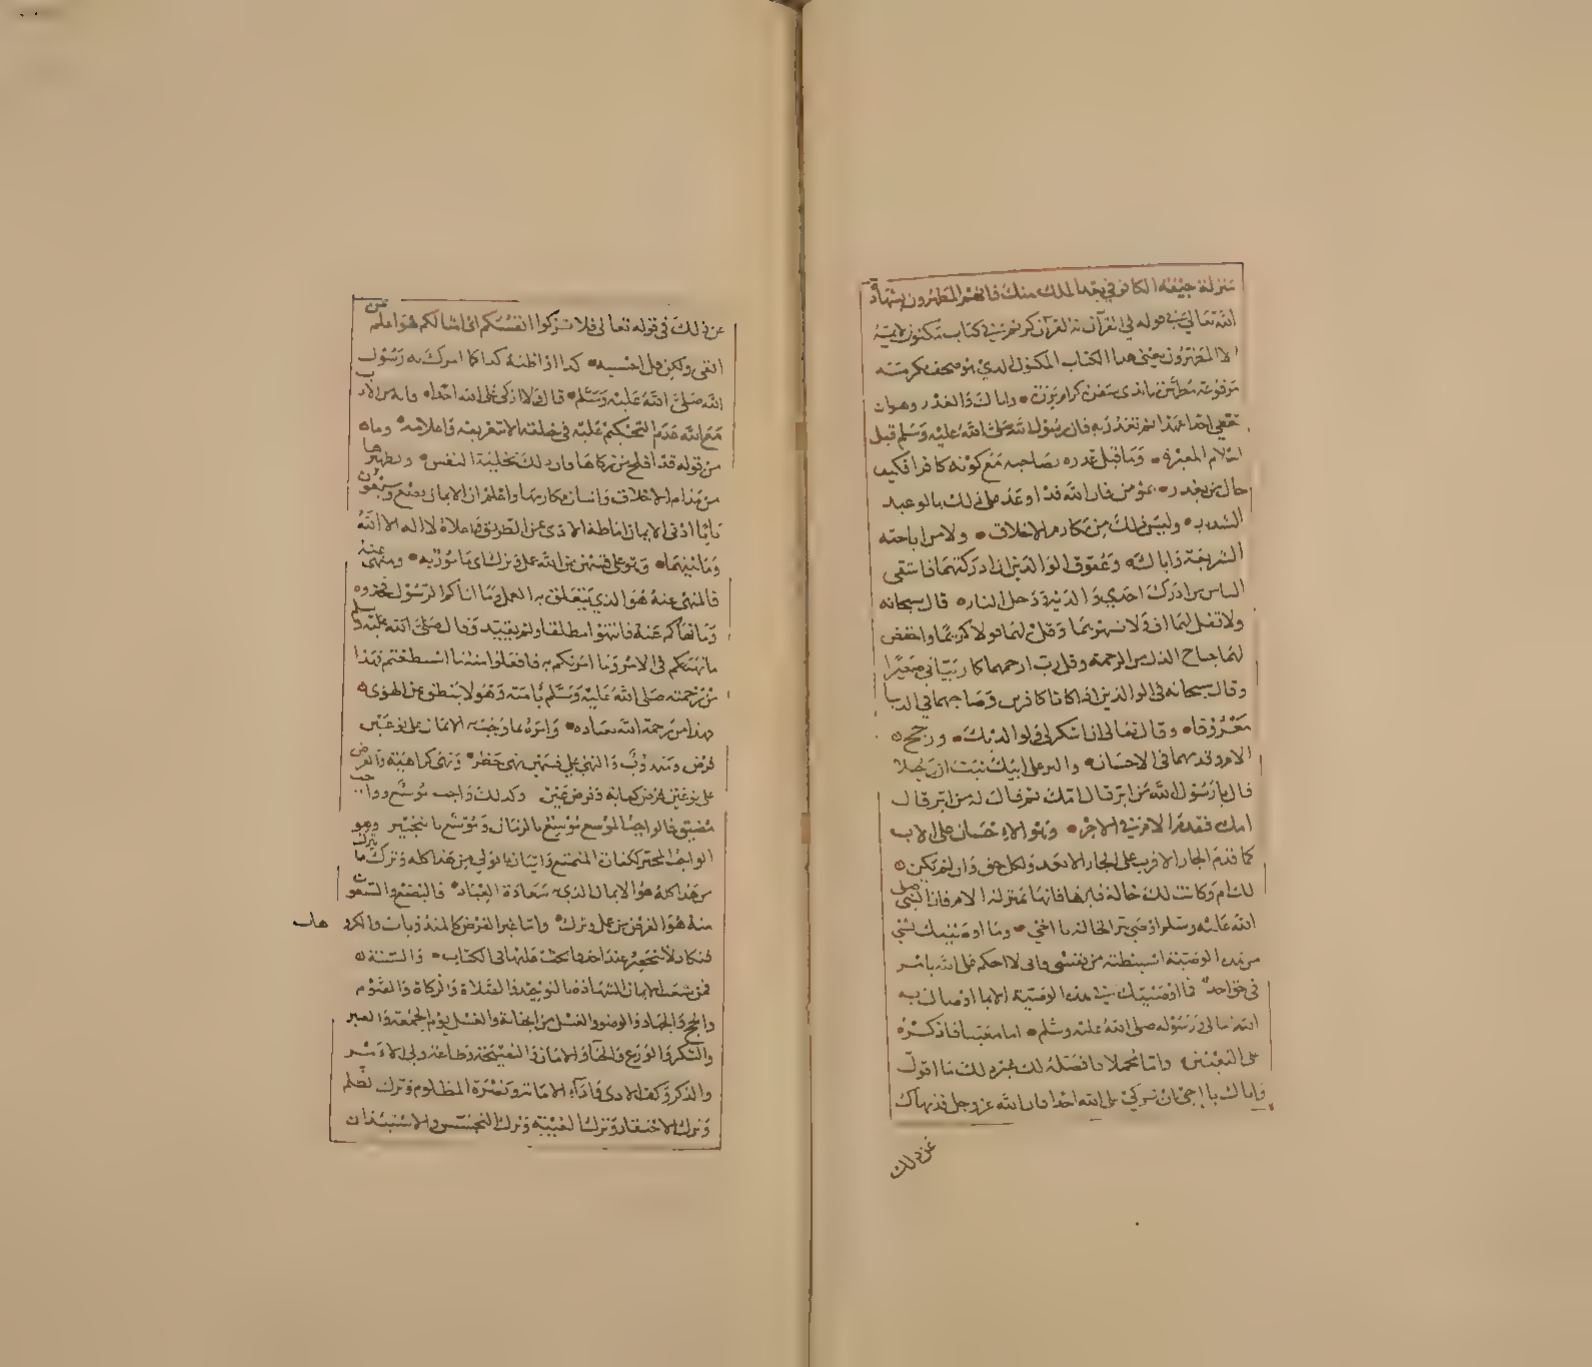 بمنزلة جيفة الكافر في بعد الملك منك فانهم المطهرون بشهادة
الله تعالى في قوله في القرآن انه لقرآن كريم في كتاب مكنون لا يمسه
الا المطهرون يعني هذا الكتاب المكنون الذي هو صحف مكرمة
مرفوعة مطهرة بايدي سفرة كرام بررة واياك والغدر وهو ان
تعطي احدا عهدا ثم تغدر به فان رسول الله صلى الله عليه وسلم قبل
اسلام المغيرة وما قبل غدره بصاحبه مع كونه كافرا فكيف
حال من يغدر بمؤمن فان الله قد اوعد على ذلك بالوعيد
الشديد وليس ذلك من مكارم الاخلاق ولا مما اباحته
الشريعة واياك وعقوق الوالدين ان ادركتهما فاشقى
الناس من ادرك احدى والديه ودخل النار قال سبحانه
ولا تقل لهما اف ولا تنهرهما وقل لهما قولا كريما واخفض
لهما جناح الذل من الرحمة وقل رب ارحمهما كما ربياني صغيرا
وقال سبحانه في الوالدين اذا كانا كافرين وصاحبهما في الدنيا
معروفا وقال تعالى ان اشكر لي ولوالديك ورجح
الام وقدمهما في الاحسان والبر على ابيك ثبت ان رجلا
قال يا رسول الله من ابر قال امك ثم قال له من ابر قال
امك فقدم الام في الاجر وهو الاحسان على الاب
كما قدم الجار الاقرب على الجار الابعد ولكل حق وان لم يكن
لك ام وكانت لك خالة فبرها فانها بمنزلة الام فان النبي صلى
الله عليه وسلم اوصى ببر الخالة يا اخي وما اوصيتك بشي
من هذه الوصية استنبطته من نفسي واني لا احكم على الله بامر
في حق احد فما اوصيتك في هذه الوصية الا بما اوصاك به
الله تعالى ورسوله صلى الله عليه وسلم اما معينا فاذكره
على التعيين واما مجملا فافصله لك غير ذلك ما اقول
واياك يا اخي ان تزكي على الله احدا فان الله عز وجل قد نهاك
عن ذلك
عن ذلك في قوله تعالى فلا تزكوا انفسكم اي امثالكم هو اعلم بمن
اتقى ولكن قل احسبه كذا او اظنه كذا كما امرك به رسول
الله صلى الله عليه وسلم قال ولا ازكي على الله احدا فانه من الادب
مع الله عدم التحكم عليه في خلقه الا بتعريفه واعلامه وما
من قوله قد افلح من زكاها فان ذلك تحلية النفس وتطهيرها
من مذام الاخلاق واتيان مكارمها واعلم ان الايمان بضع وسبعون
بابا ادنى الايمان اماطة الاذى عن الطريق واعلاه لا اله الا الله
وما بينهما وهو على قسمين من الله عمل وترك اي مامور به ومنهي عنه
فالمنهي عنه هو الذي يتعلق به العمل وما اتاكم الرسول فخذوه
وما نهاكم عنه فانتهوا مطلقا ولم يقيد وقال صلى الله عليه وسلم
ما نهيتكم في الامر وما امرتكم به فافعلوا منه ما استطعتم فهذا
من رحمته صلى الله عليه وسلم بامته وهو لا ينطق عن الهوى
فهذا من رحمة الله بعباده وامره بما وجب به الايمان على نوعين
فرض ومندوب والنهي على قسمين نهي حظر ونهي كراهية والفرض
على نوعين فرض كفاية وفرض عين وكذلك واجب موسع وواجب
مضيق فالواجب الموسع موسع بالزمان وموسع بالتخيير وهو
الواجب المخير ككفارة المتمتع واتيانه يؤتي من هذا كله وترك ما يترك
من هذا كله هو الايمان الذي به سعادة العباد فالبضع والسبعون
منه هو الفرض من عمل وترك واما غير الفرض كالمندوبات والمكروهات
فتكاد لا تنحصر عند احد فابحث عليها في الكتاب والسنة
فمن شعب الايمان الشهادة بالتوحيد والصلاة والزكاة والصوم
والحج والجهاد والوضوء والغسل من الجنابة والغسل يوم الجمعة والصبر
والشكر والورع والحياء والامان والنصيحة وطاعة ولي الامر
والذكر وكف الاذى واداء الامانة ونصرة المظلوم وترك الظلم
وترك الاحتقار وترك الغيبة وترك التجسس والاستئذان